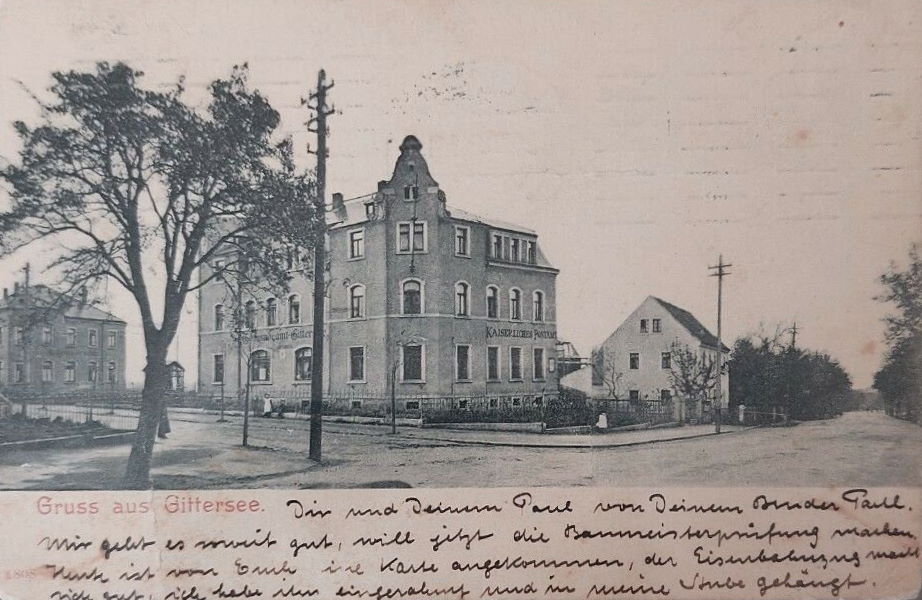 KAISERLICHES POSTAMT
Gruss aus Gittersee.
Dir und Deinem Paul von Deinem Bruder Paul.
Mir geht es soweit gut, will jetzt die Baumeisterprüfung machen,
Heute ist von Euch die Karte angekommen, der Eisenbahnzug macht
sich gut, ich habe ihn eingerahmt und in meine Stube gehängt.